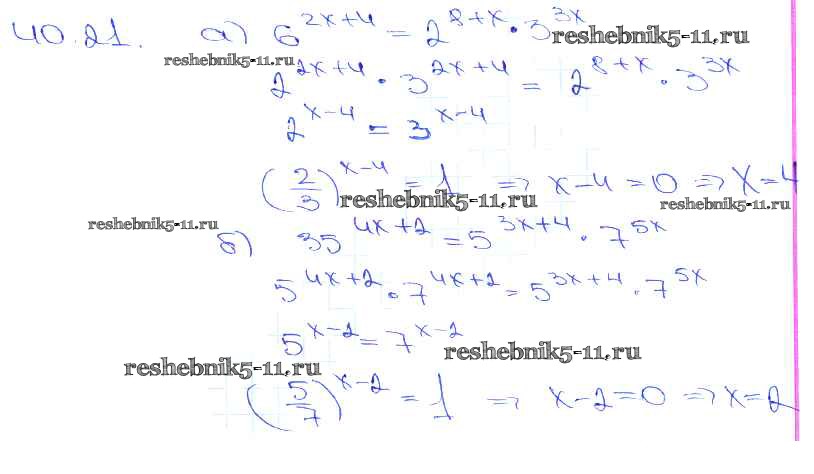 40.21. а) 6^{2x+4} = 2^{8+x} · 3^{3x}
reshebnik5-11.ru
reshebnik5-11.ru
2^{2x+4} · 3^{2x+4} = 2^{8+x} · 3^{3x}
2^{x-4} = 3^{x-4}
(2/3)^{x-4} = 1 => x-4=0 => x=4
reshebnik5-11.ru
reshebnik5-11.ru
reshebnik5-11.ru
б) 35^{4x+2} = 5^{3x+4} · 7^{5x}
5^{4x+2} · 7^{4x+2} = 5^{3x+4} · 7^{5x}
5^{x-2} = 7^{x-2}
reshebnik5-11.ru
reshebnik5-11.ru
(5/7)^{x-2} = 1 => x-2=0 => x=2